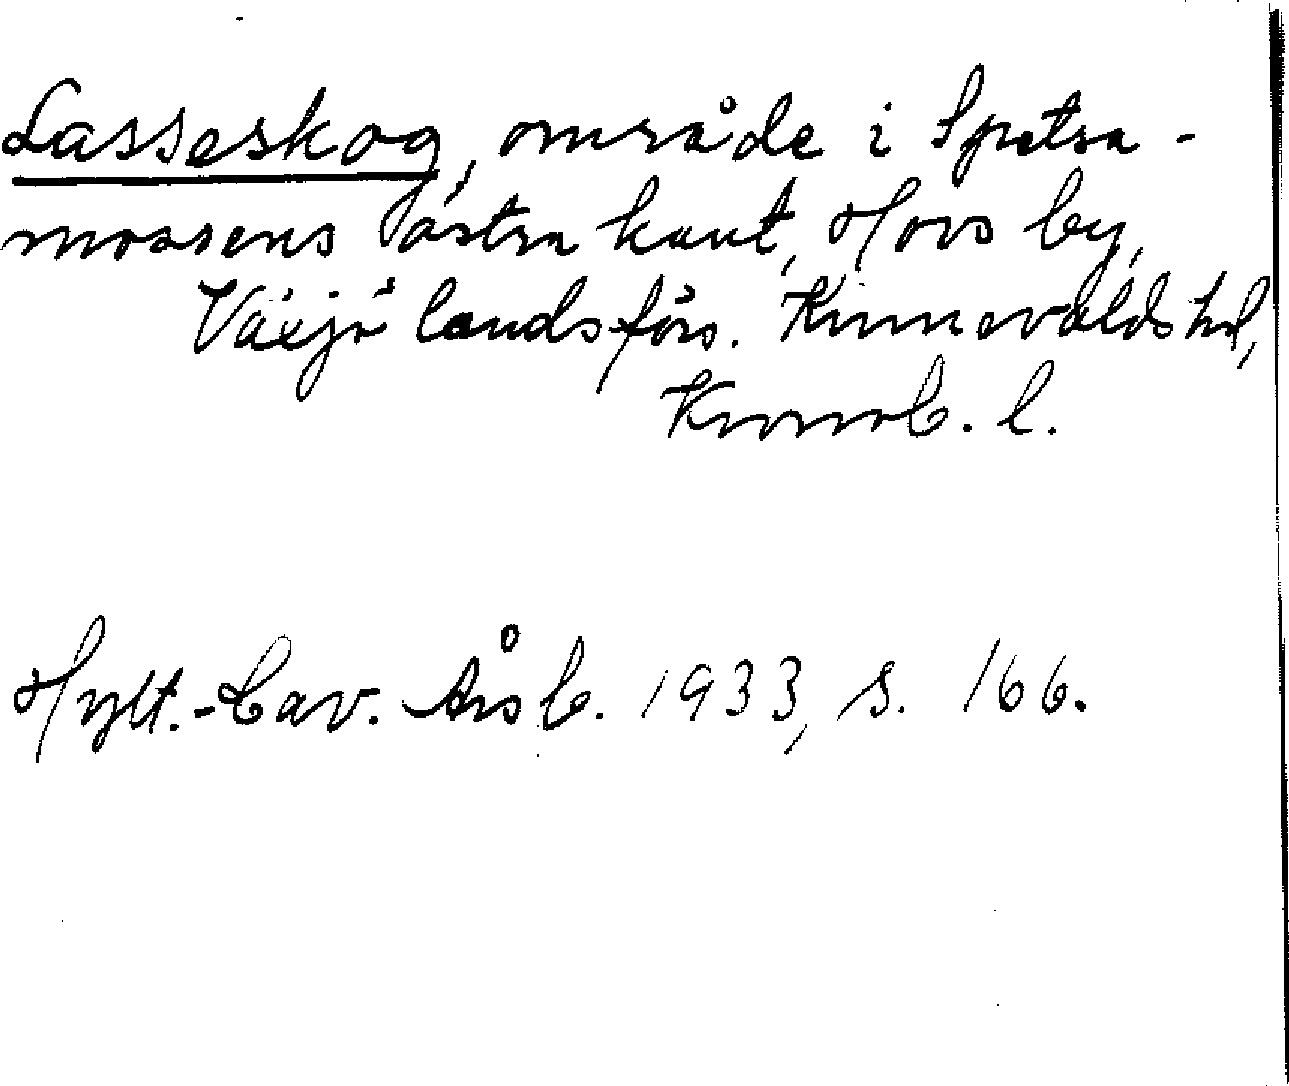 Lasseskog, område i Spetsa-
mossens östra kant, Hovs by,
Växjö landsförs. Kinnevalds hd,
Kronob. l.
Hylt.-Cav. Årsb. 1933, s. 166.